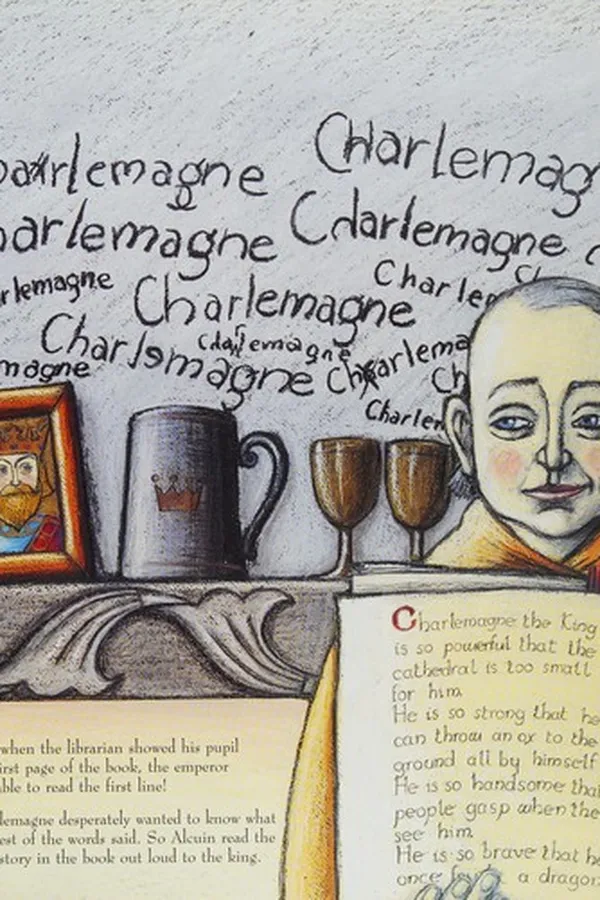 Charlemag
arlemagne
arlemagne
Cdarlemagne
rlemagne
Charlem
Charlemagne
Charlsmagne
Cdarlemagne
magne
Charlen
Charlemagne the King
is so powerful that the
cathedral is too small
for him.
He is so strong that he
can throw an ox to the
ground all by himself
He is so handsome that
people gasp when the
see him.
He is so brave that he
once a dragon
when the librarian showed his pupil
irst page of the book, the emperor
able to read the first line!
lemagne desperately wanted to know what
est of the words said. So Alcuin read the
story in the book out loud to the king.